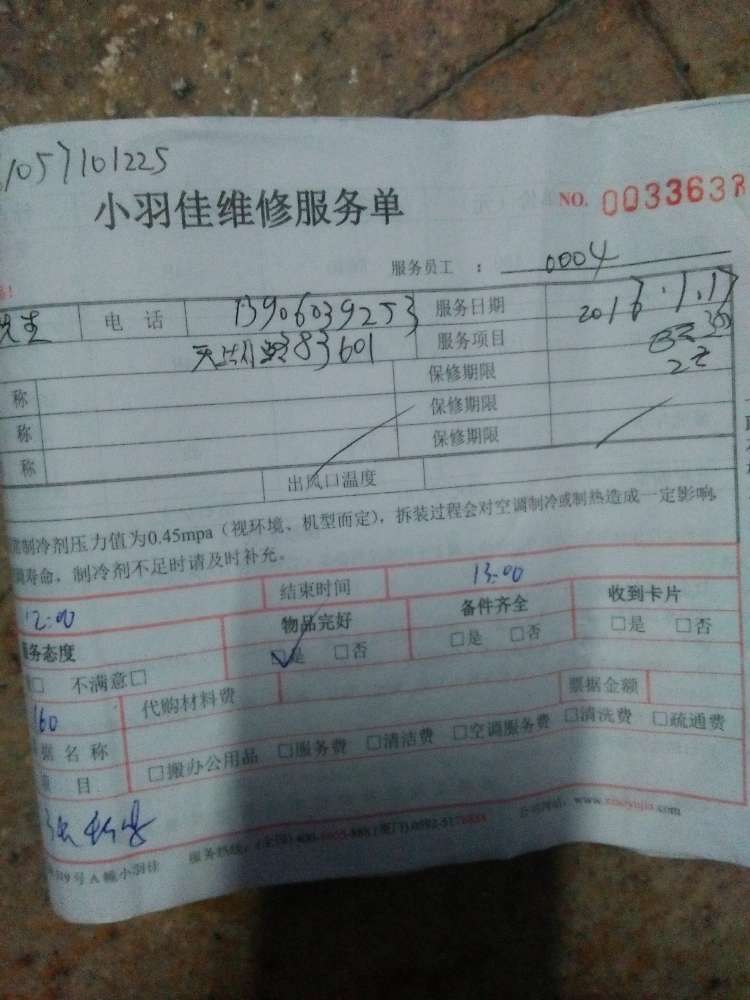 1057101225
小羽佳维修服务单 NO. 0033637
服务员工 : 0004
先生 电话 13906039253 服务日期 2017.1.17
83601 服务项目
称 保修期限
称 保修期限
称 保修期限
出风口温度
制冷剂压力值为0.45mpa（视环境、机型而定），拆装过程会对空调制冷或制热造成一定影响，
寿命，制冷剂不足时请及时补充。
12:00 结束时间 13:00
服务态度 物品完好 备件齐全 收到卡片
□ 不满意□ □是 □否 □是 □否 □是 □否
160 代购材料费 票据金额
据名称
项目 □搬办公用品 □服务费 □清洁费 □空调服务费 □清洗费 □疏通费
服务热线：(全国) 400- (厦门) 0592-5176888 公司网站：www.xiaoyujia.com
309号A幢小羽佳